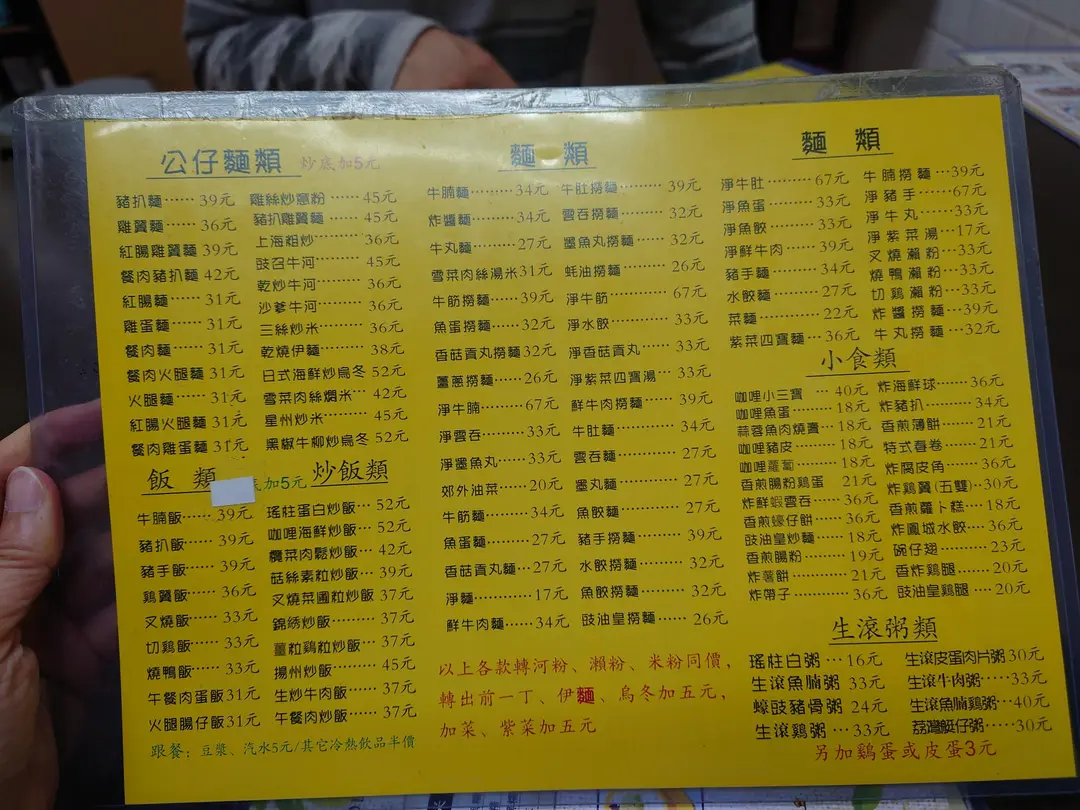 公仔麵類 炒底加5元
豬扒麵……39元
雞翼麵……36元
紅腸雞翼麵39元
餐肉豬扒麵42元
紅腸麵……31元
雞蛋麵……31元
餐肉麵……31元
餐肉火腿麵31元
火腿麵……31元
紅腸火腿麵31元
餐肉雞蛋麵31元
雞絲炒意粉……45元
豬扒雞翼麵……45元
上海粗炒………36元
豉召牛河………45元
乾炒牛河………36元
沙爹牛河………36元
三絲炒米………36元
乾燒伊麵………38元
日式海鮮炒烏冬52元
雪菜肉絲燜米…42元
星州炒米………45元
黑椒牛柳炒烏冬52元
飯類 加5元
牛腩飯……39元
豬扒飯……39元
豬手飯……39元
鷄翼飯……36元
叉燒飯……33元
切鷄飯……33元
燒鴨飯……33元
午餐肉蛋飯31元
火腿腸仔飯31元
炒飯類
瑤柱蛋白炒飯…52元
咖哩海鮮炒飯…52元
欖菜肉鬆炒飯…42元
菇絲素粒炒飯…39元
叉燒菜圃粒炒飯37元
錦綉炒飯………37元
薑粒鷄粒炒飯…37元
揚州炒飯………45元
生炒牛肉飯……37元
午餐肉炒飯……37元
跟餐：豆漿、汽水5元/其它冷熱飲品半價
麵類
牛腩麵………34元
炸醬麵………34元
牛丸麵………27元
雪菜肉絲湯米31元
牛筋撈麵……39元
魚蛋撈麵……32元
香菇貢丸撈麵32元
薑蔥撈麵……26元
淨牛腩………67元
淨雲吞………33元
淨墨魚丸……33元
郊外油菜……20元
牛筋麵………34元
魚蛋麵………27元
香菇貢丸麵…27元
淨麵…………17元
鮮牛肉麵……34元
牛肚撈麵………39元
雲吞撈麵………32元
墨魚丸撈麵……32元
蚝油撈麵………26元
淨牛筋…………67元
淨水餃…………33元
淨香菇貢丸……33元
淨紫菜四寶湯…33元
鮮牛肉撈麵……39元
牛肚麵…………34元
雲吞麵…………27元
墨丸麵…………27元
魚餃麵…………27元
豬手撈麵………39元
水餃撈麵………32元
魚餃撈麵………32元
豉油皇撈麵……26元
以上各款轉河粉、瀨粉、米粉同價，
轉出前一丁、伊麵、烏冬加五元，
加菜、紫菜加五元
麵類
淨牛肚………67元
淨魚蛋………33元
淨魚餃………33元
淨鮮牛肉……39元
豬手麵………34元
水餃麵………27元
菜麵…………22元
紫菜四寶麵…36元
牛腩撈麵…39元
淨豬手……67元
淨牛丸……33元
淨紫菜湯…17元
叉燒瀨粉…33元
燒鴨瀨粉…33元
切鷄瀨粉…33元
炸醬撈麵…39元
牛丸撈麵…32元
小食類
咖哩小三寶…40元
咖哩魚蛋……18元
蒜蓉魚肉燒賣…18元
咖哩豬皮……18元
咖哩蘿蔔……18元
香煎腸粉鷄蛋 21元
炸鮮蝦雲吞……36元
香煎蠔仔餅……36元
豉油皇炒麵……18元
香煎腸粉………19元
炸薯餅…………21元
炸帶子…………36元
炸海鮮球……36元
炸豬扒………34元
香煎薄餅……21元
特式春卷……21元
炸腐皮角……36元
炸鷄翼(五雙)…30元
香煎蘿卜糕…18元
炸鳳城水餃…36元
碗仔翅………23元
香炸鷄腿……20元
豉油皇鷄腿…20元
生滾粥類
瑤柱白粥…16元
生滾魚腩粥33元
蠔豉豬骨粥24元
生滾鷄粥…33元
生滾皮蛋肉片粥30元
生滾牛肉粥……33元
生滾魚腩鷄粥…40元
荔灣艇仔粥……30元
另加鷄蛋或皮蛋3元